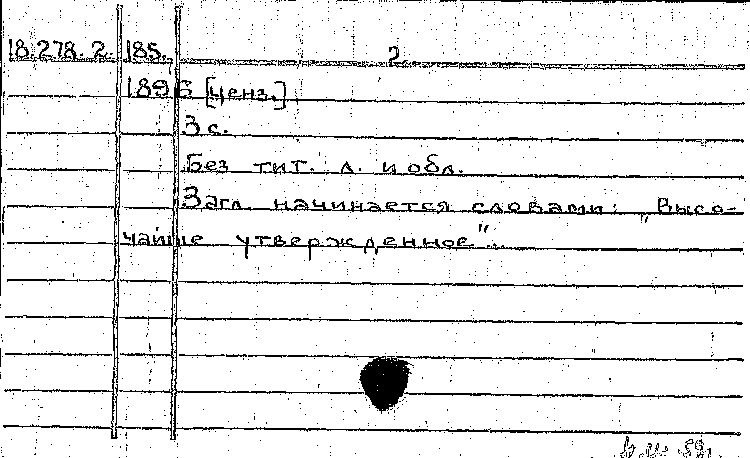 18.278.2. 185. 2
1896 [ценз.]
3 с.
Без тит. л. и обл.
Загл. начинается словами: „Высо-
чайше утвержденное".